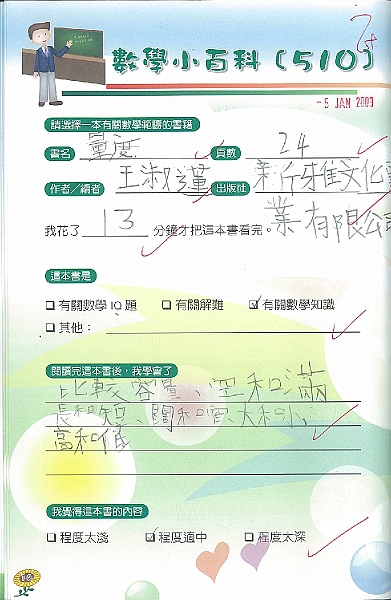 數學小百科(510)
-5 JAN 2009
請選擇一本有關數學範疇的書籍
書名 量度 頁數 24
作者/編者 王淑蓮 出版社 新雅文化
業有限公司
我花了 13 分鐘才把這本書看完。
這本書是
有關數學IQ題 有關解難 有關數學知識
其他:
閱讀完這本書後,我學會了
比較容量、空和滿
長和短、闊和窄、大和小、
高和低
我覺得這本書的內容
程度太淺 程度適中 程度太深